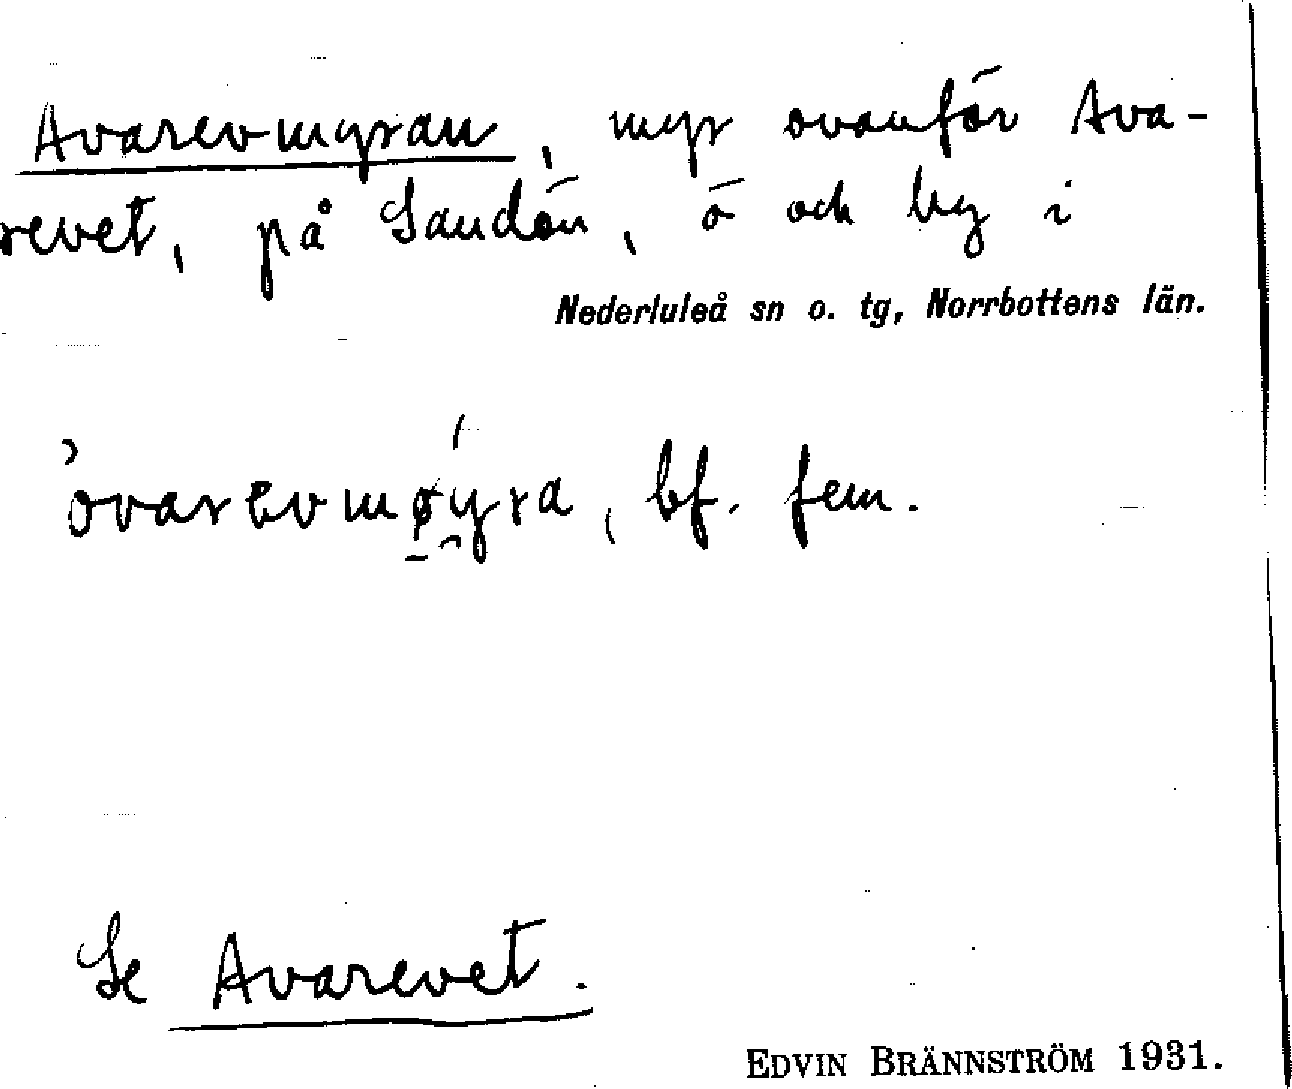 Avarevmyran, myr ovanför Ava-
revet, på Sandön, ö och by i
Nederluleå sn o. tg, Norrbottens län.
òvarevmø̱y̯ra, bf. fem.
Se Avarevet.
EDVIN BRÄNNSTRÖM 1931.